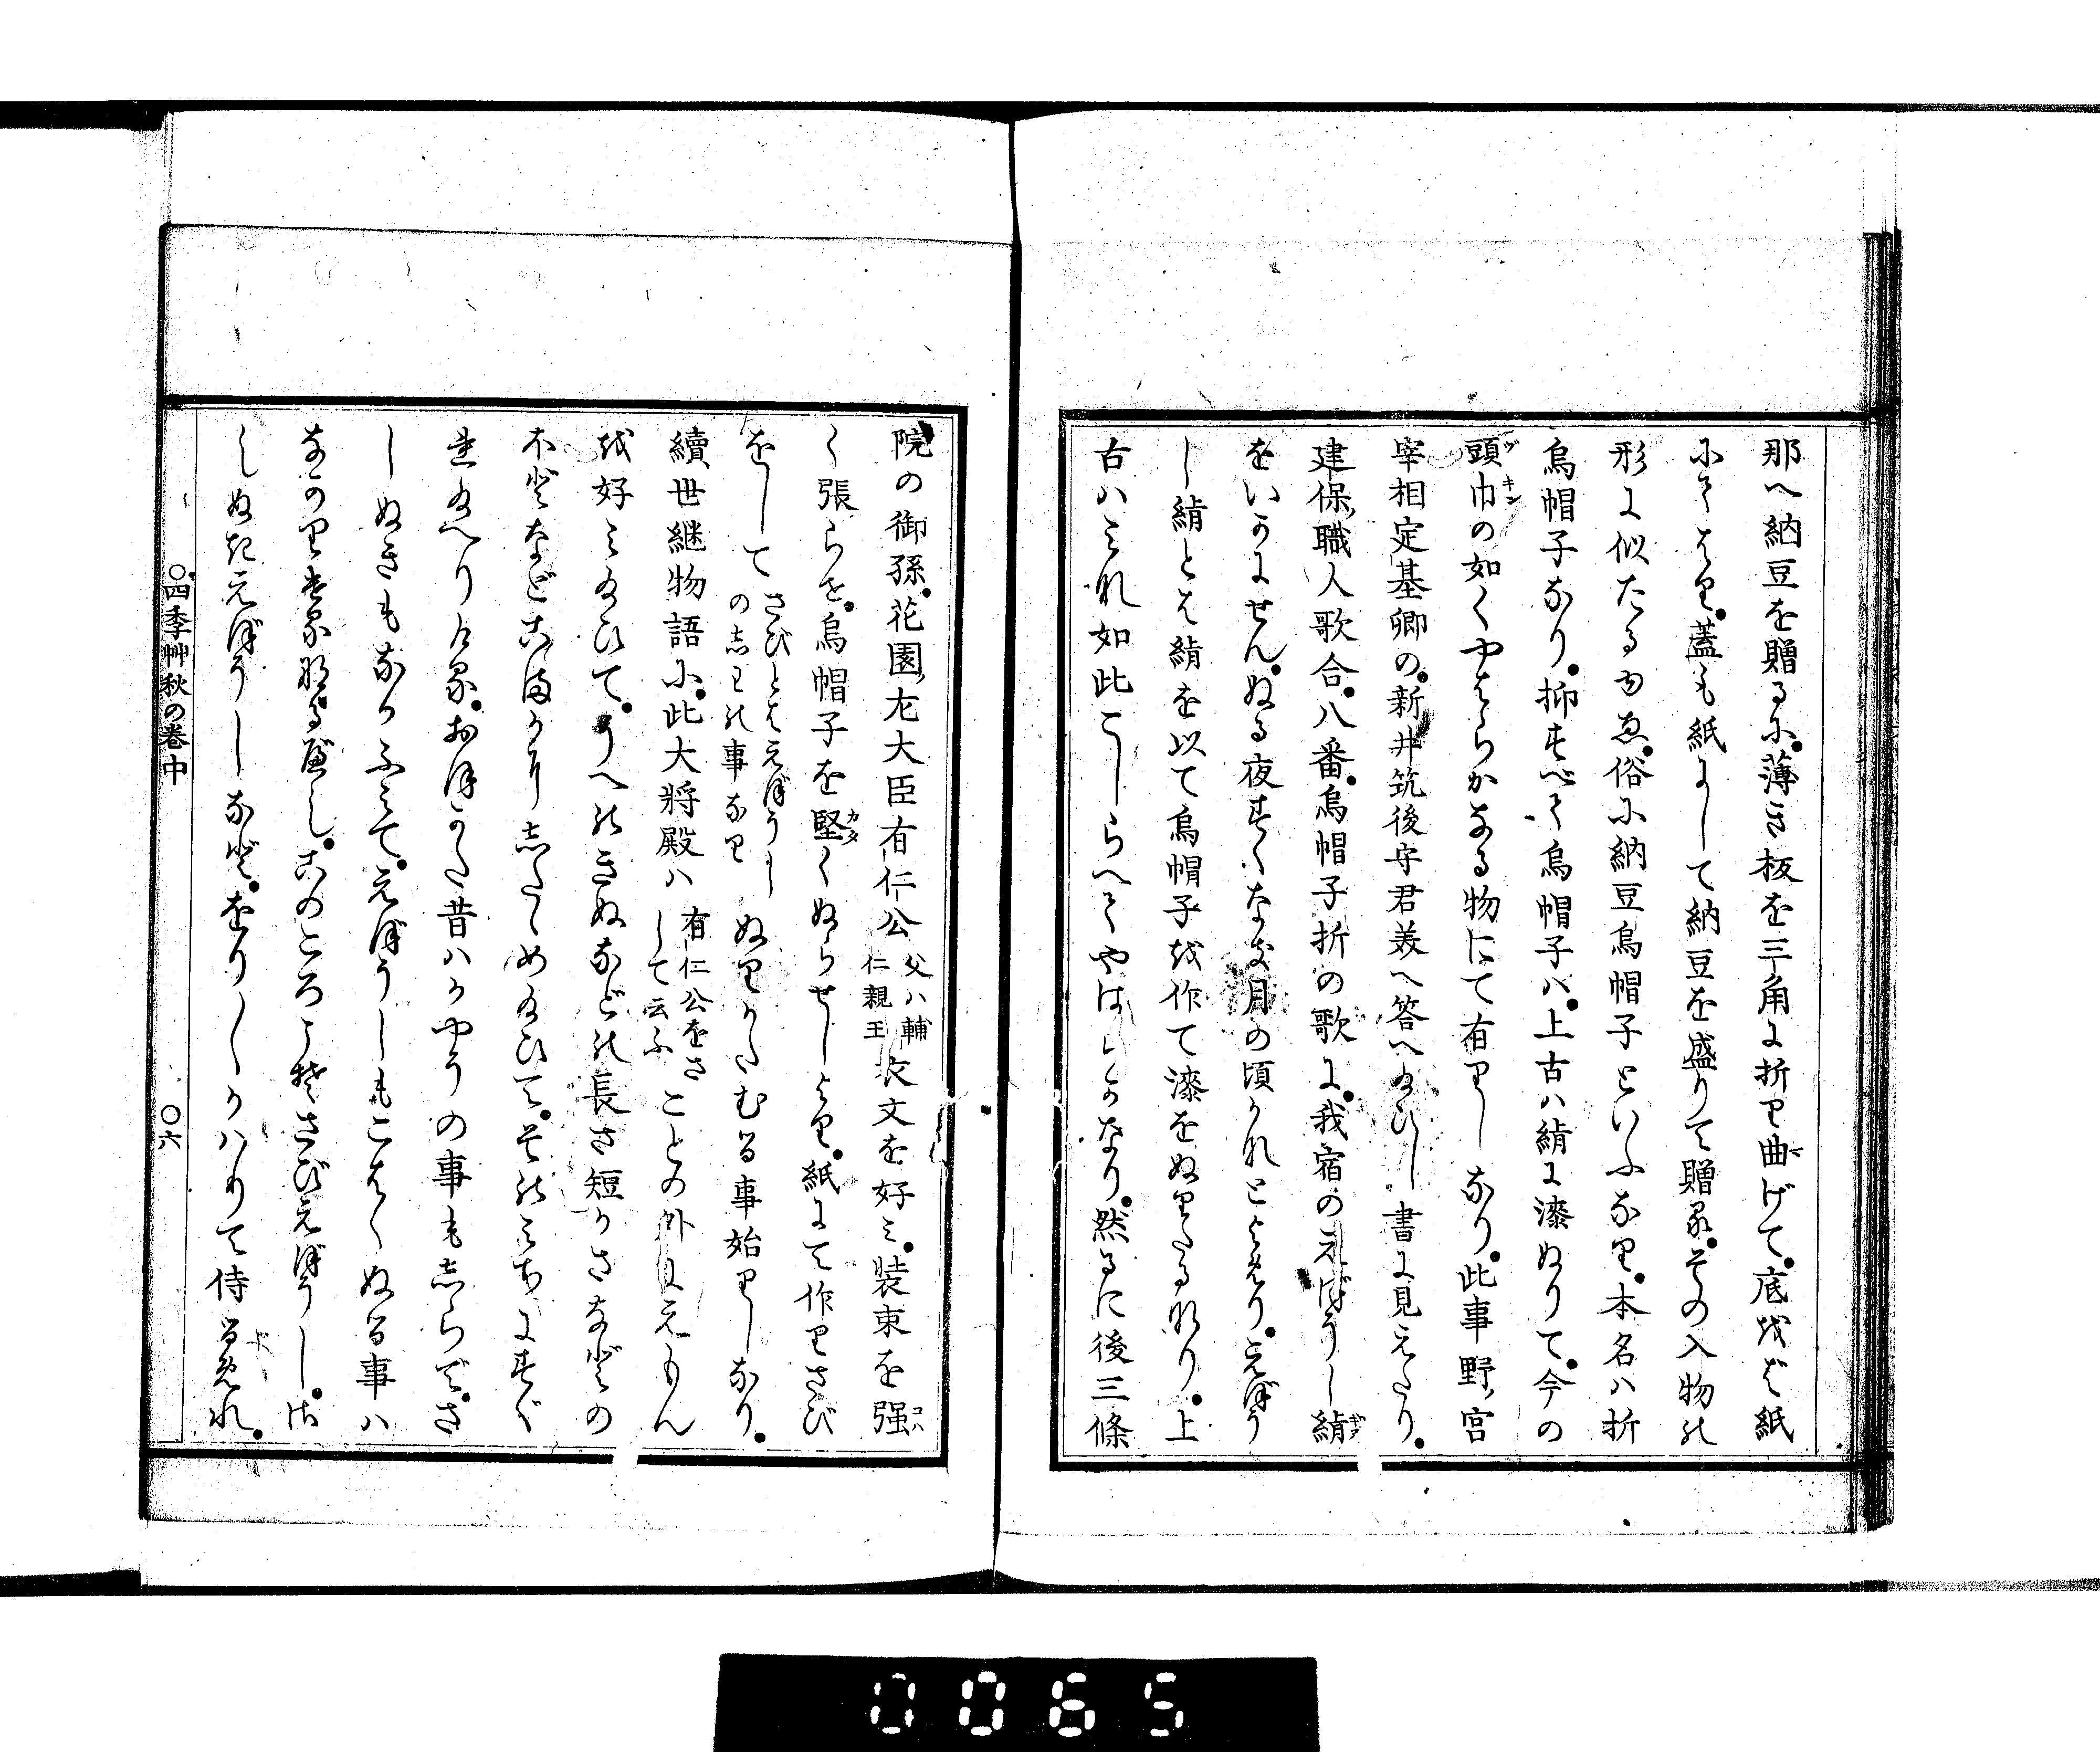 那へ納豆を贈るに薄き板を三角に折り曲げて底をば紙
にてはり蓋も紙にして納豆を盛りて贈るその入物の
形に似たるゆゑ俗に納豆烏帽子といふなり本名ハ折
烏帽子なり抑すべて烏帽子ハ上古ハ絹に漆ぬりて今の
頭巾の如くやはらかなる物にて有りしなり此事野ノ宮
宰相定基卿の新井筑後守君美へ答へ給ひし書に見えたり
建保職人歌合八番烏帽子折の歌に我宿のえぼうし絹
をいかにせんぬる夜すくなき月の頃かれとよめりえぼう
し絹とは絹を以て烏帽子を作て漆をぬりたるなり上
古ハみな如此こしらへてやはらかなり然るに後三條
院の御孫花園ノ左大臣有仁公父ハ輔仁親王衣文を好み装束を强
く張らせ烏帽子を堅くぬらせしより紙にて作りさび
をしてさびとはえぼうしのしわの事なりぬりかたむる事始りしなり
續世継物語に此大將殿ハ有仁公をさして云ふことの外にえもん
を好み給ひてうへのきぬなどの長さ短かさなどの
ほどなどこまかにしたゝめ給ひてそのみちにすぐ
れ給へりける おほかた昔ハかやうの事もしらでさ
しぬきもなかふみてえぼうしもこはくぬる事ハ
なかりけるなるべしこのころこそさびえぼうしき
らめきえぼうしなどをり〳〵かハりて侍るめれ
〇四季艸秋の巻中
〇六
0065